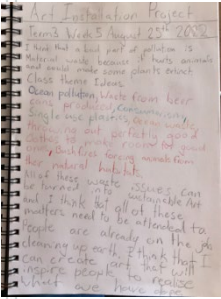 Art Installation Project
Term 3 Week 5 August 25th 2002
I think that a bad part of pollution is
Material waste because it hurts animals
and could make some plants extinct
Class theme Ideas
Ocean pollution, Waste from beer
cans produced, Consumerism,
Single use plastics, Ocean waste,
throwing out perfectly good
clothes to make room for good
Bushfires forcing animals from
their natural habitats
All of these waste issues can
be turned into sustainable Art
and I think that all of these
matters need to be attended to
People are already on the job
cleaning up earth, I think that I
can create art that will
inspire people to realise
what we have done